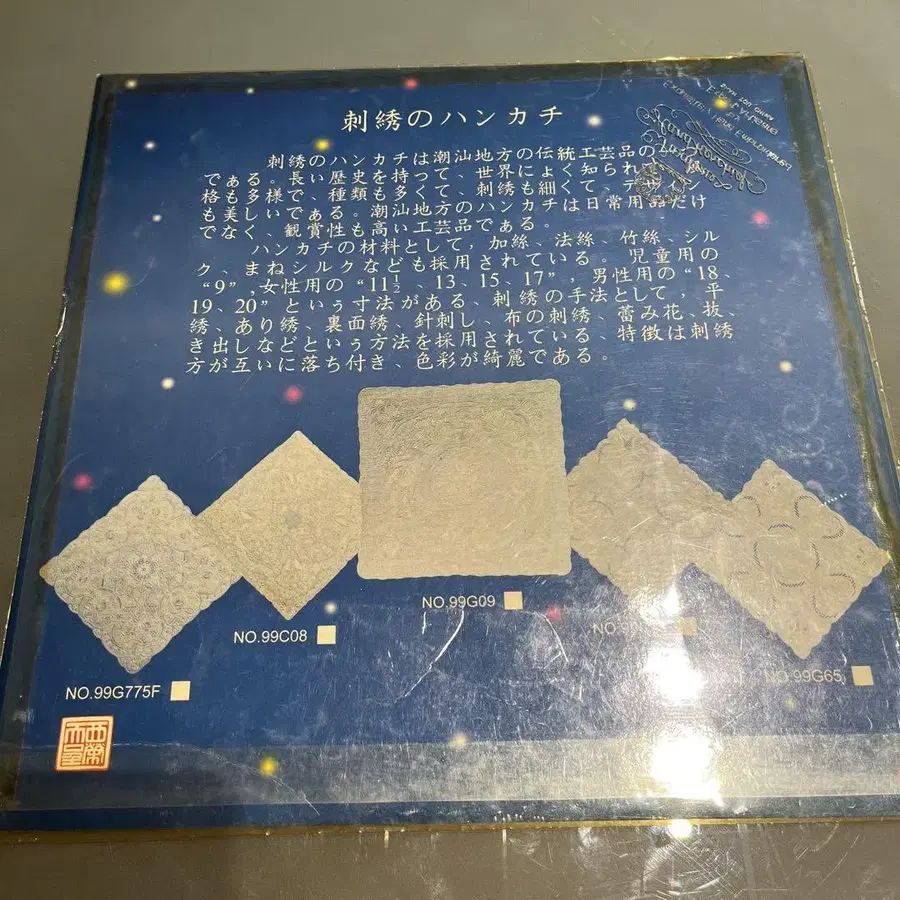 刺绣のハンカチ
刺绣のハンカチは潮汕地方の伝統工芸品の
でぁる。長い歴史を持って、世界によく知られ
格も多様で、種類も多くて、刺绣も細くて、デザイン
も美しいでぁる。潮汕地方のハンカチは日常用品だけ
でなく、観賞性も高い工芸品でぁる。
ハンカチの材料として，加絲、法絲、竹絲、シル
ク、まねシルクなども採用されている。児童用の
“9”,女性用の“11½、13、15、17”，男性用の“18、
19、20”という寸法がぁる、刺绣の手法として，平
绣、あり绣、裏面绣、針刺し、布の刺绣、蕾み花、抜、
き出しなどという方法を採用されている、特徴は刺绣
方が互いに落ち付き、色彩が綺麗でぁる。
NO.99G09
NO.99C08
NO.
NO.99G65
NO.99G775F